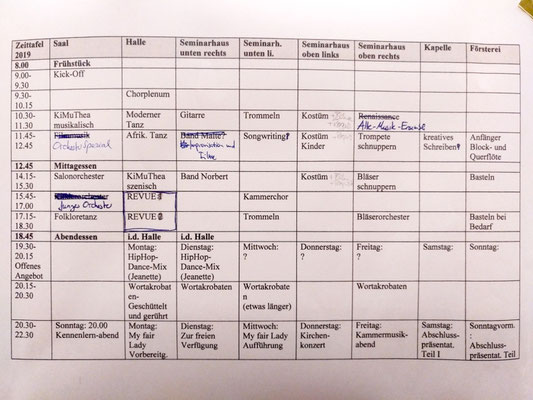 Zeittafel 2019 Saal Halle Seminarhaus unten rechts Seminarh. unten li. Seminarhaus oben links Seminarhaus oben rechts Kapelle Försterei
8.00 Frühstück
9.00-9.30 Kick-Off
9.30-10.15 Chorplenum
10.30-11.30 KiMuThea musikalisch Moderner Tanz Gitarre Trommeln Kostüm Renaissance Alte-Musik-Ensemble
11.45-12.45 Filmmusik Orchester Spezial Afrik. Tanz Band Malte? Improvisation und Songwriting? Kostüm Kinder Trompete schnuppern kreatives Schreiben? Anfänger Block- und Querflöte
12.45 Mittagessen
14.15-15.30 Salonorchester KiMuThea szenisch Band Norbert Kostüm Bläser schnuppern Basteln
15.45-17.00 Junges Orchester REVUE Kammerchor
17.15-18.30 Folkloretanz REVUE Trommeln Bläserorchester Basteln bei Bedarf
18.45 Abendessen i.d. Halle i.d. Halle
19.30-20.15 Offenes Angebot Montag: HipHop-Dance-Mix (Jeanette) Dienstag: HipHop-Dance-Mix (Jeanette) Mittwoch: ? Donnerstag: ? Freitag: ? Samstag: Sonntag:
20.15-20.30 Wortakrobaten-Geschüttelt und gerührt Wortakrobaten Wortakrobaten (etwas länger) Wortakrobaten
20.30-22.30 Sonntag: 20.00 Kennenlern-abend Montag: My fair Lady Vorbereitg. Dienstag: Zur freien Verfügung Mittwoch: My fair Lady Aufführung Donnerstag: Kirchen-konzert Freitag: Kammermusik-abend Samstag: Abschluss-präsentat. Teil I Sonntagvorm.: Abschluss-präsentat. Teil